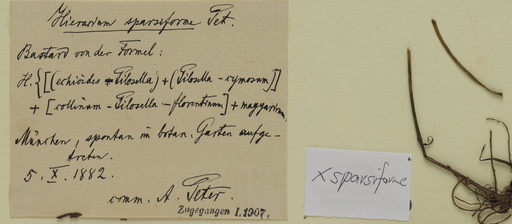 Hieracium sparsiforme Pet.
Bastard von der Formel:
H. {[(echioides - Pilosella) + (Pilosella - cymosum)]
+ [collinum - Pilosella - florentinum] + magyaricum.
München, spontan im botan. Garten aufge-
treten.
5. X. 1882.
comm. A. Peter.
Zugegangen I.1907.
x sparsiforme